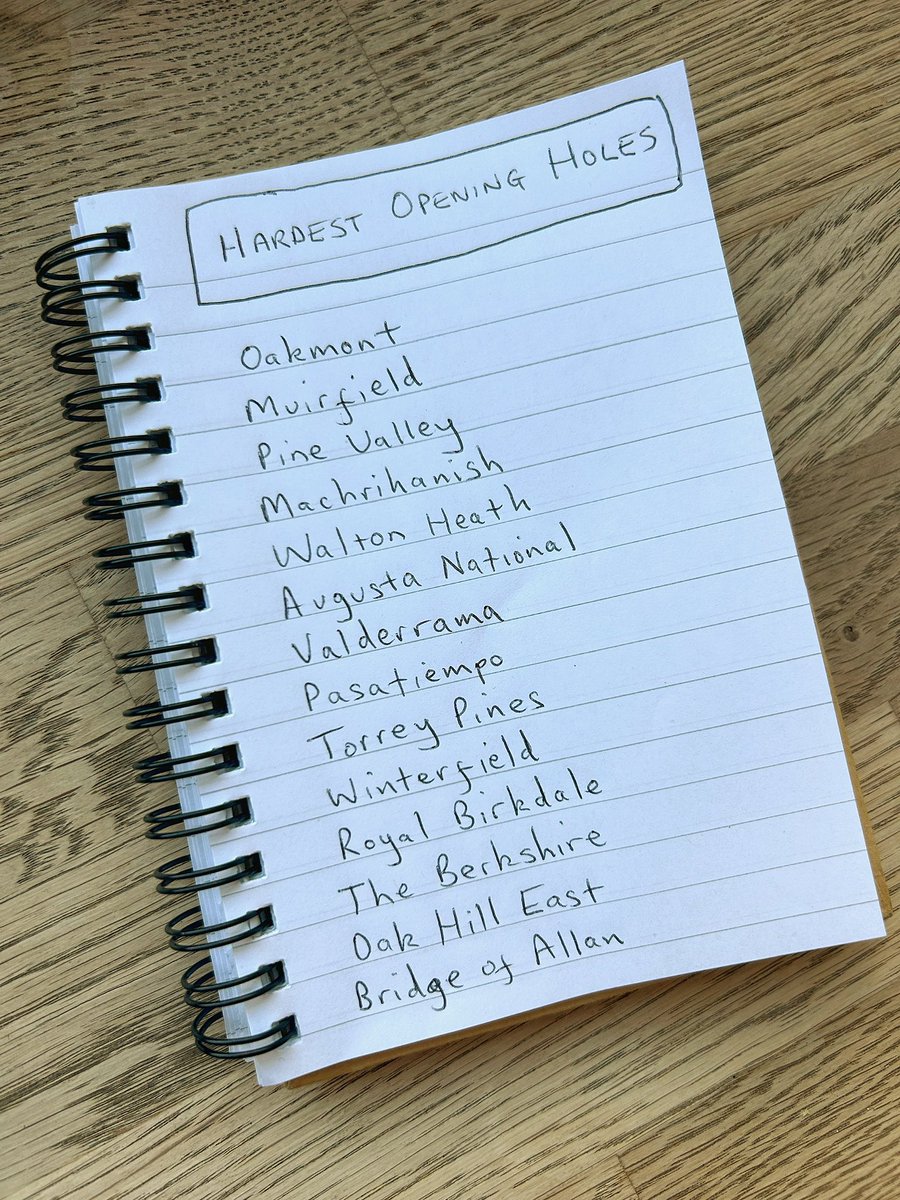 HARDEST OPENING HOLES
Oakmont
Muirfield
Pine Valley
Machrihanish
Walton Heath
Augusta National
Valderrama
Pasatiempo
Torrey Pines
Winterfield
Royal Birkdale
The Berkshire
Oak Hill East
Bridge of Allan